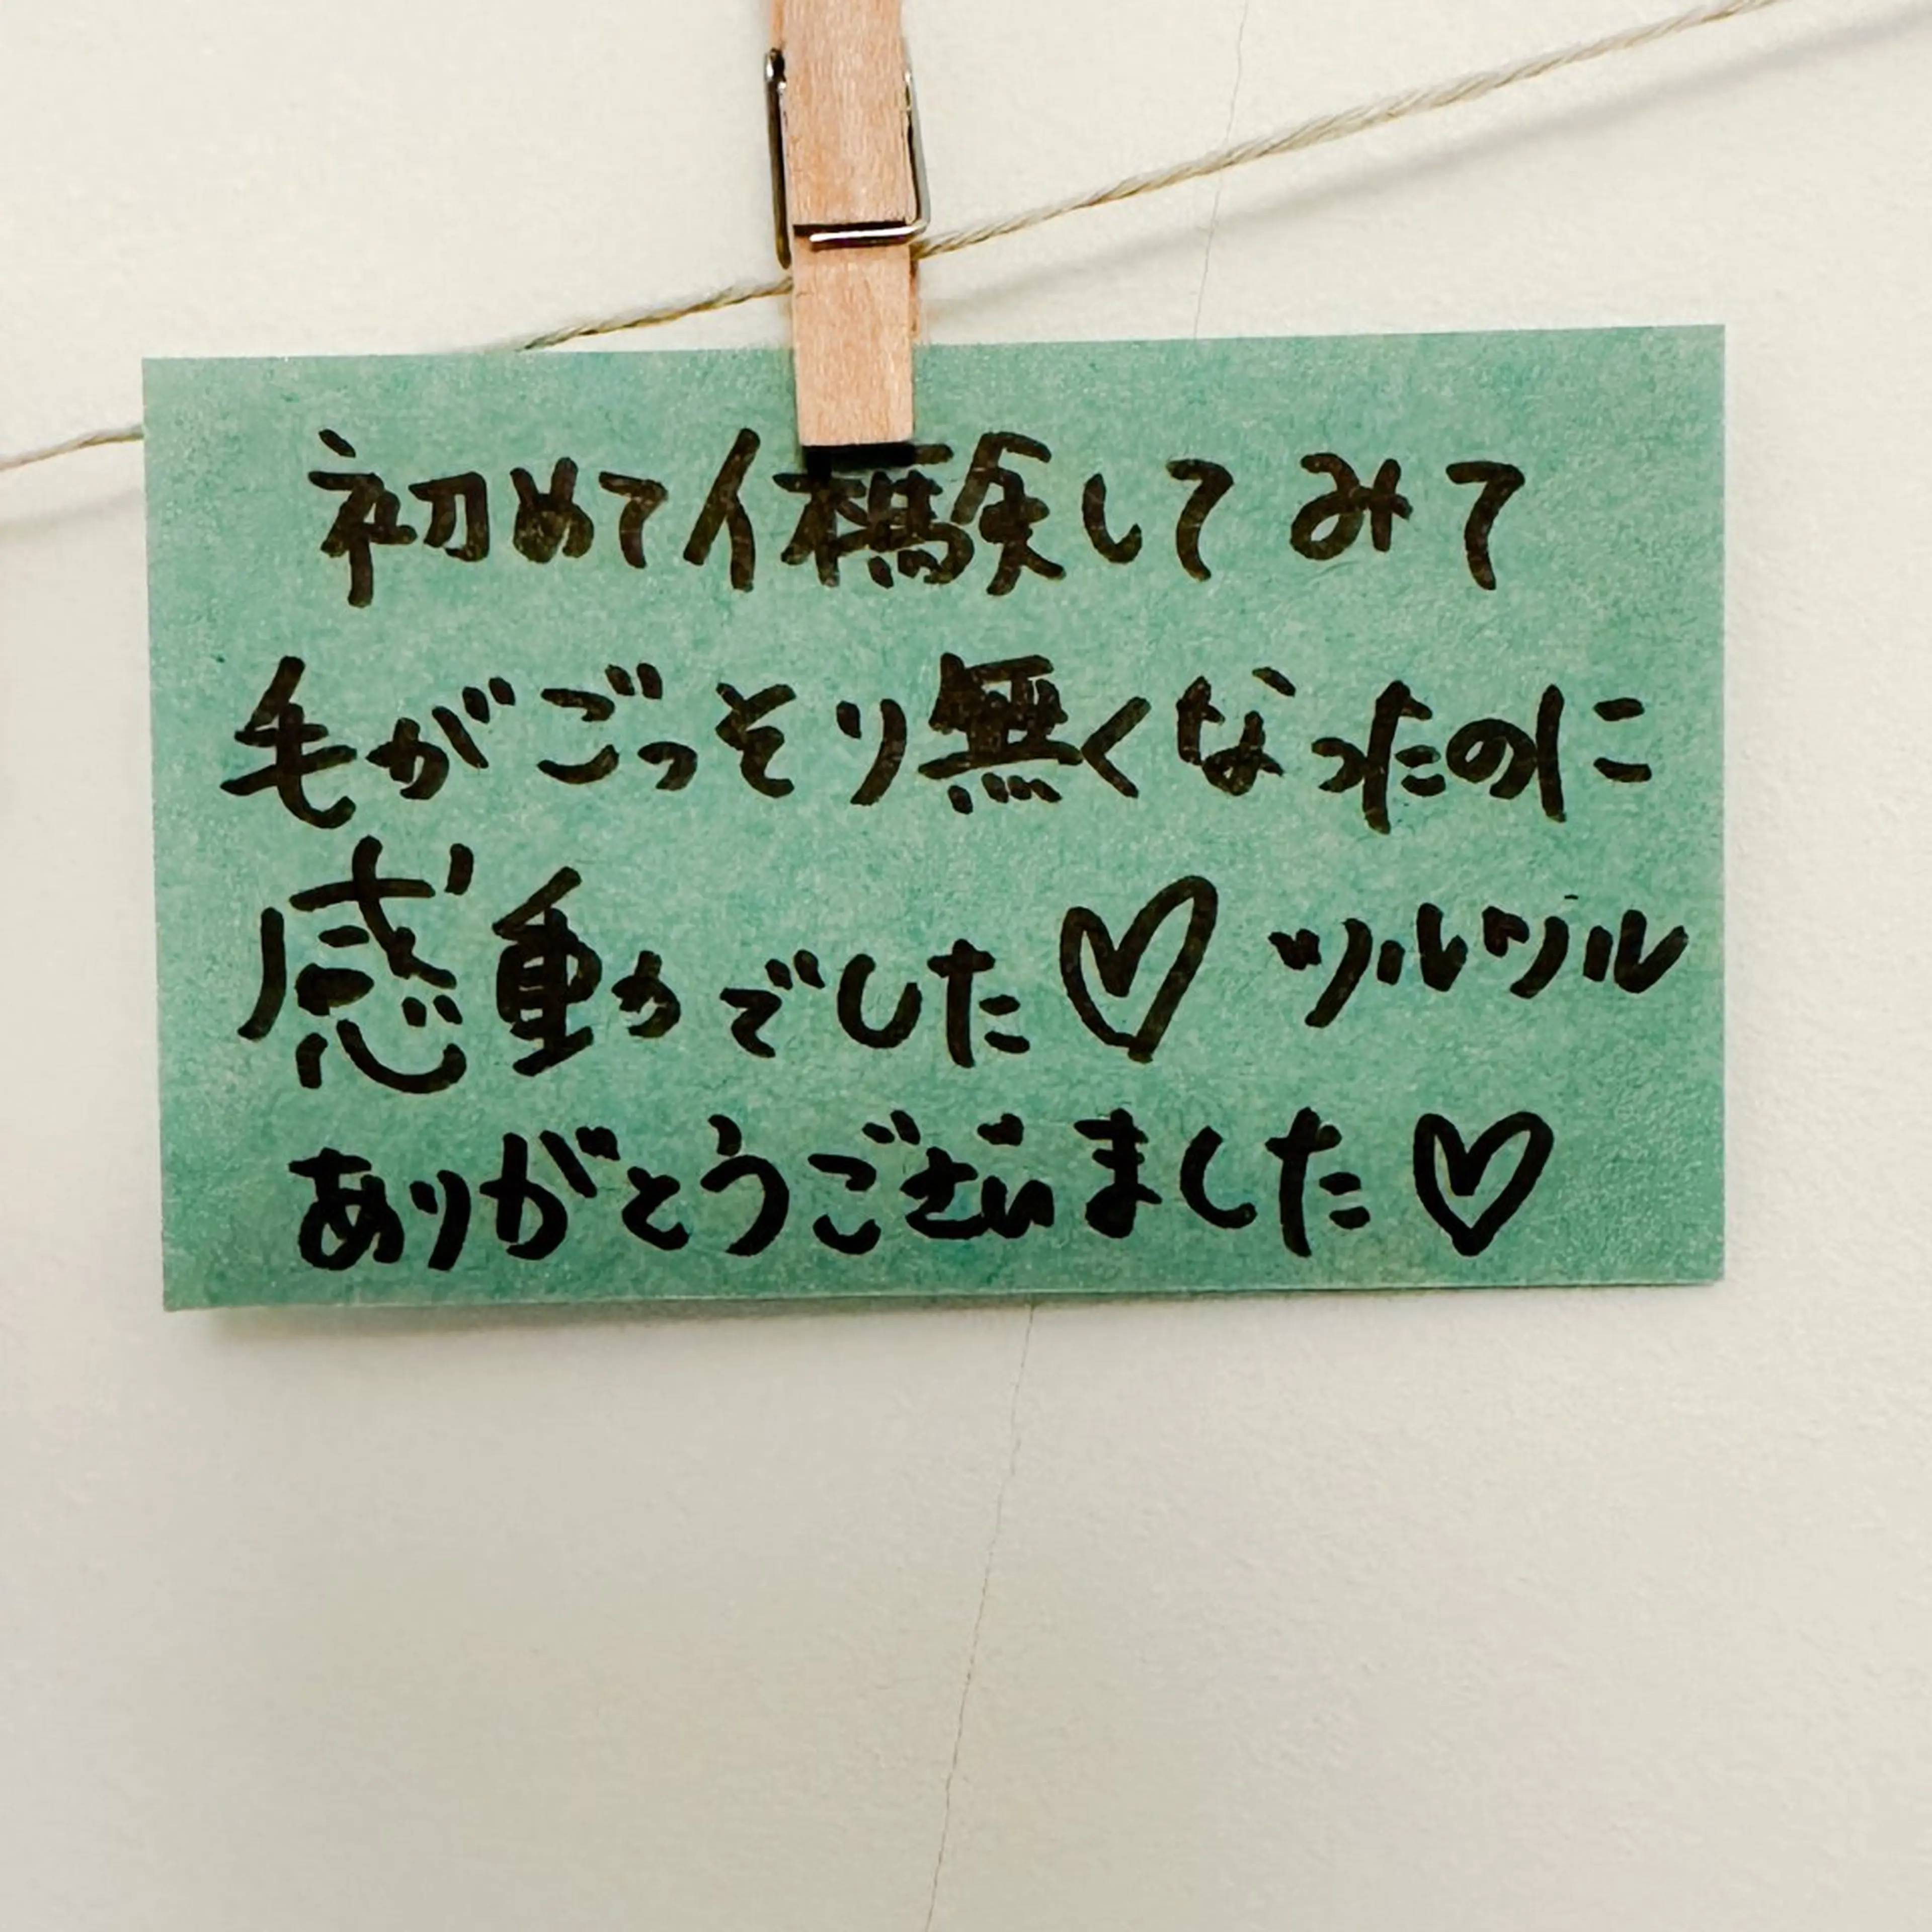 初めて体験してみて
毛がごっそり無くなったのに
感動でした♡ ツルツル
ありがとうございました♡